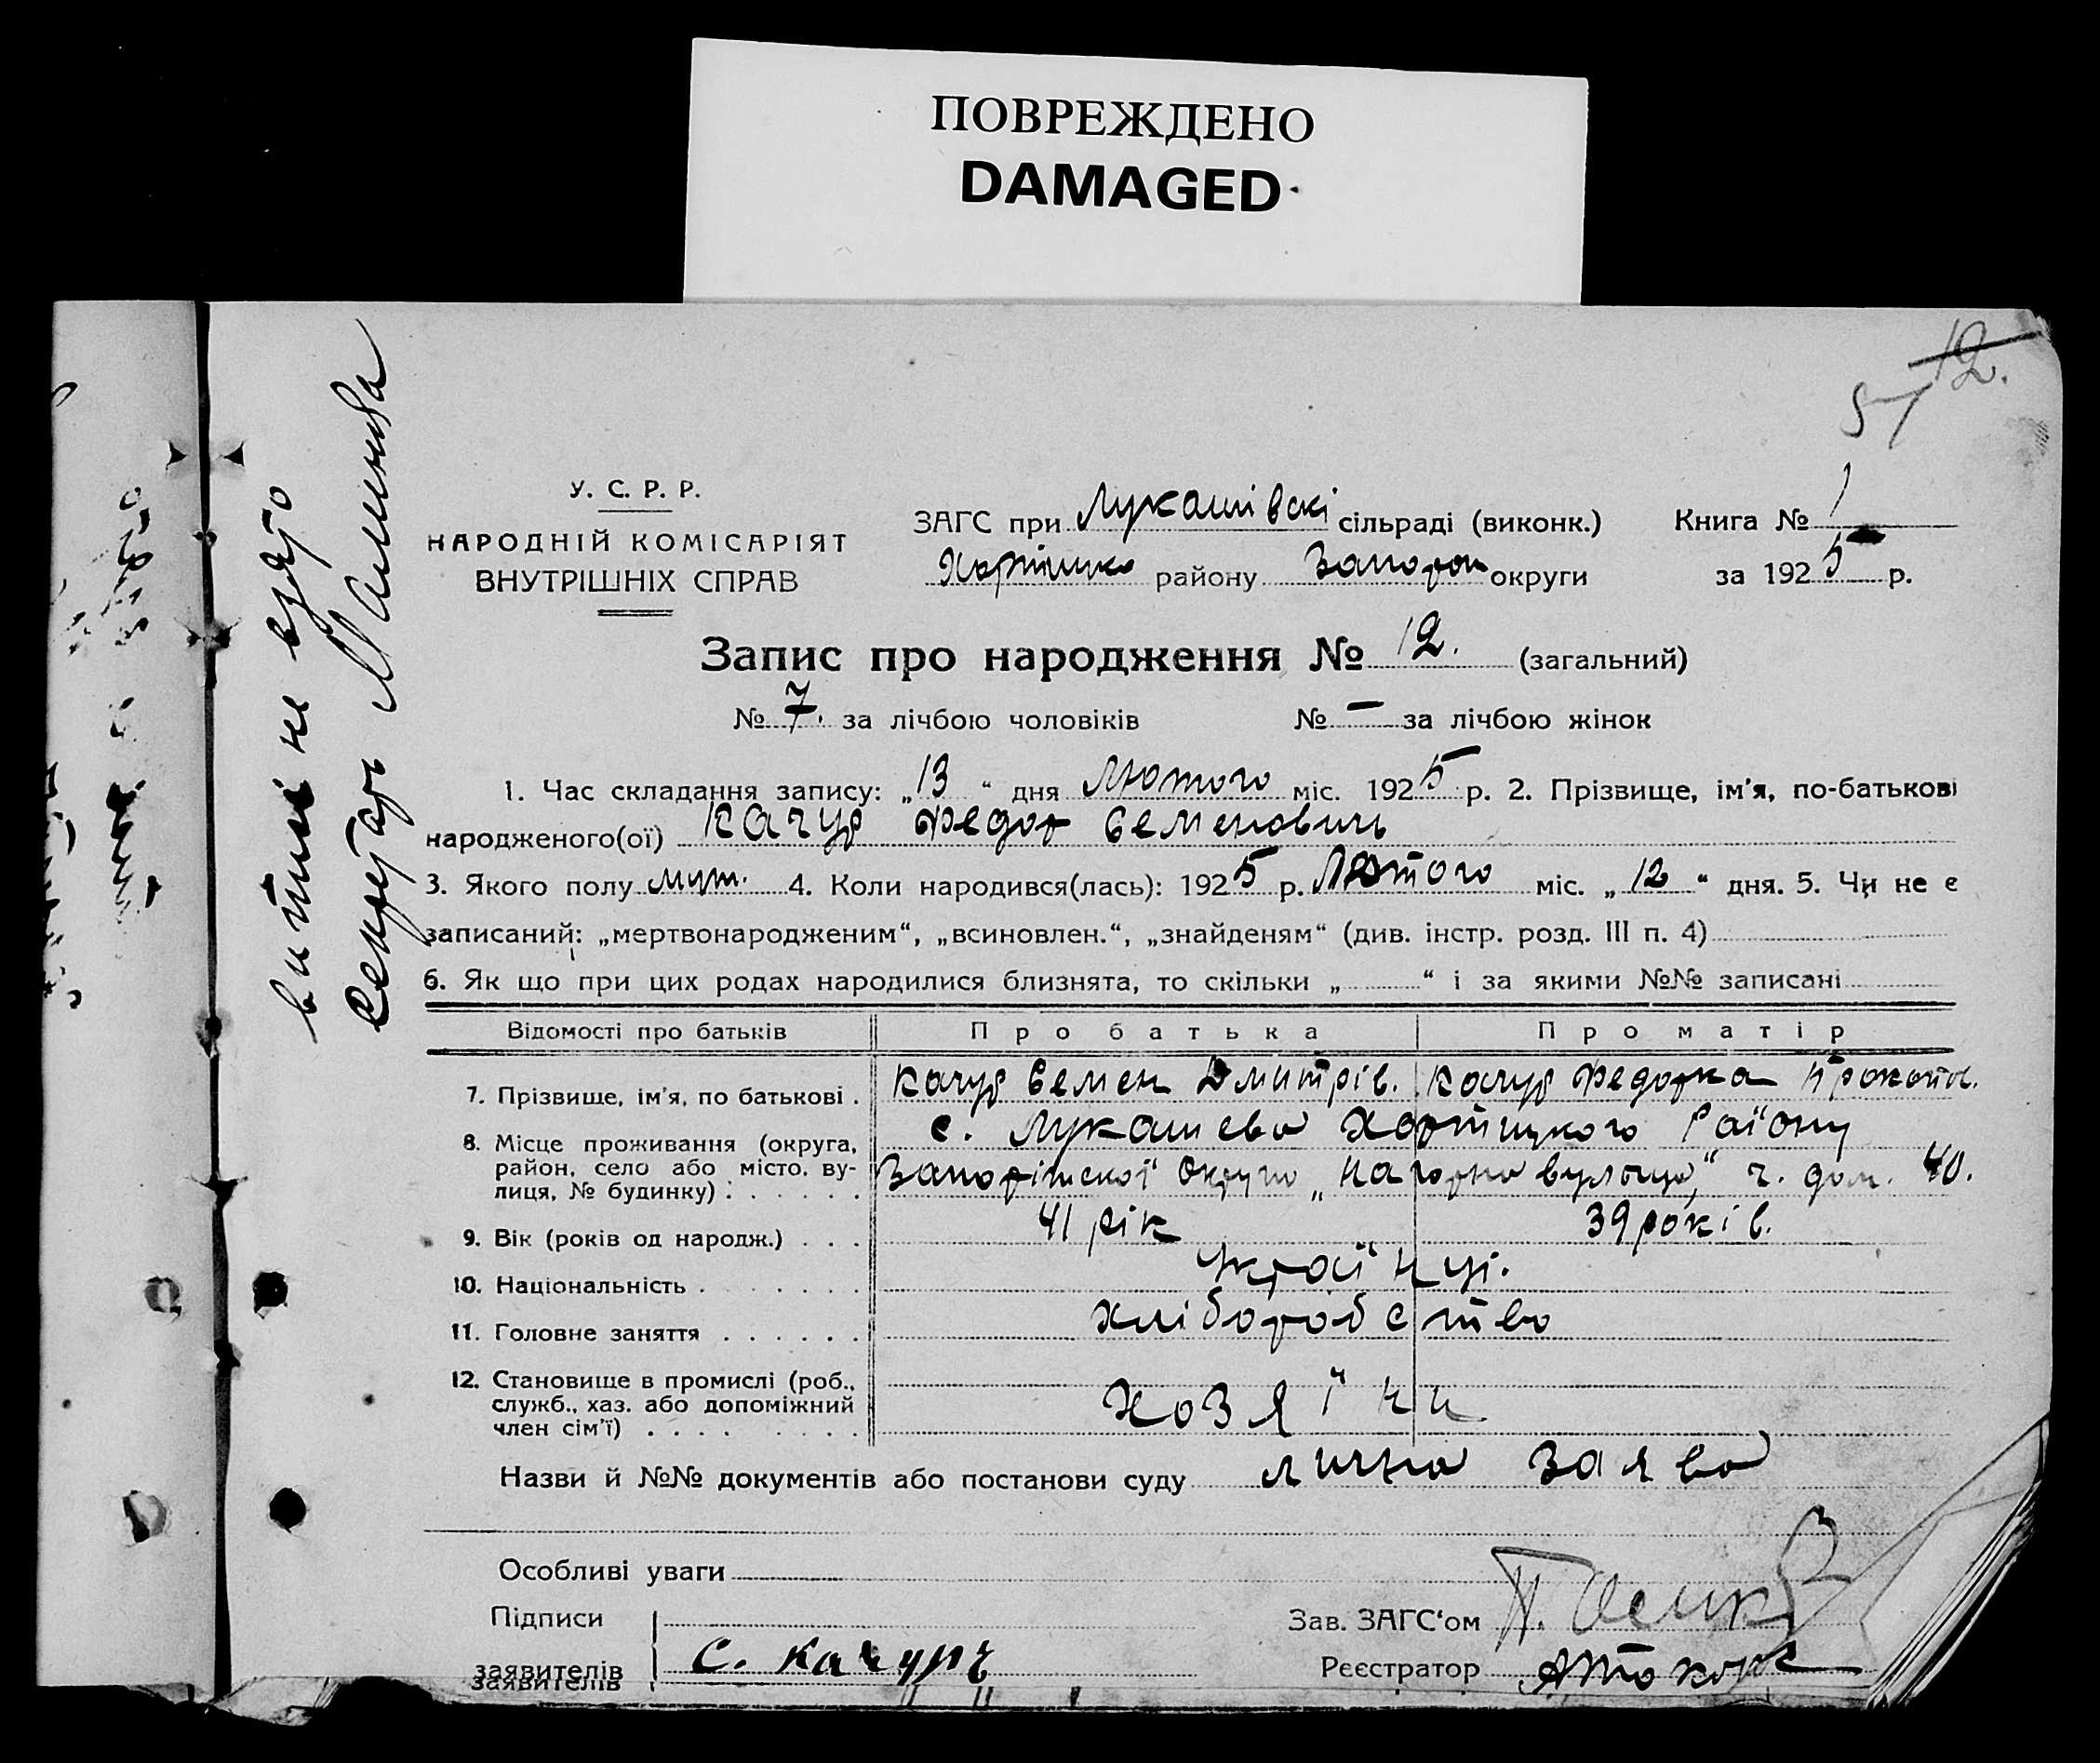 ПОВРЕЖДЕНО
DAMAGED
12.
57
витягі не взято
Секретарь
У. С. Р. Р.
НАРОДНІЙ КОМІСАРІЯТ
ВНУТРІШНІХ СПРАВ
ЗАГС при Лукашівскі сільраді (виконк.) Книга № 1
району Запорож округи за 1925 р.
Запис про народження № 12. (загальний)
№ 7. за лічбою чоловіків № — за лічбою жінок
1. Час складання запису: „13“ дня Лютого міс. 1925 р. 2. Прізвище, ім'я, по-батькові
народженого(ої) Качур Федор Семенович
3. Якого полу муж. 4. Коли народився(лась): 1925 р. Лютого міс. „12“ дня. 5. Чи не є
записаний: „мертвонародженим“, „всиновлен.“, „знайденям“ (див. інстр. розд. III п. 4)
6. Як що при цих родах народилися близнята, то скільки „ “ і за якими №№ записані
Відомості про батьків Про батька Про матір
7. Прізвище, ім'я, по батькові . Качур Семен Дмитрів. Качур Федорка Прокопів.
8. Місце проживання (округа, район, село або місто, вулиця, № будинку) : . . . . . с. Лукашево Хортицкого Району
Запоріжскої Округи „Нагорна вулыця“ ч. дом. 40.
9. Вік (років од народж.) . . . 41 рік 39 років.
10. Національність . . . . . . . Украӥнці.
11. Головне заняття . . . . . . хліборобство
12. Становище в промислі (роб., служб., хаз. або допоміжний член сім'ї) . . . . . . . . . хозяїни
Назви й №№ документів або постанови суду лична заява
Особливі уваги
Підписи
заявителів С. Качуръ
заявителів
Зав. ЗАГС'ом
Реєстратор